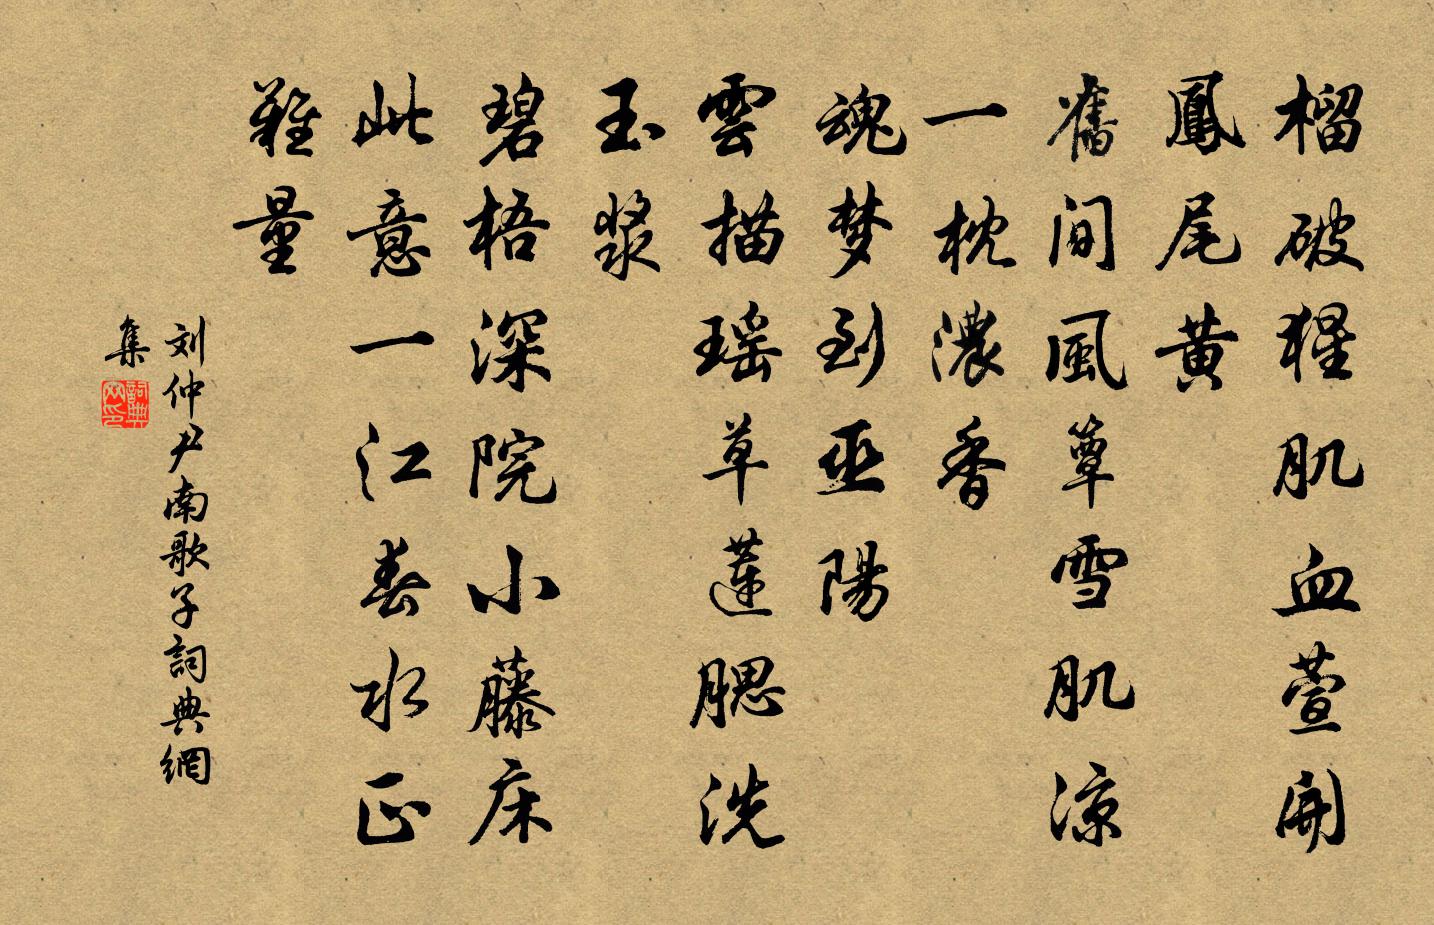 榴破猩肌血萱開
鳳尾黄
舊间風簟雪肌涼
一枕濃香
魂梦到巫陽
雲描瑶草蓮腮洗
玉漿
碧梧深院小藤床
此意一江春水正
難量
刘仲尹南歌子詞典網
集
詞典网印